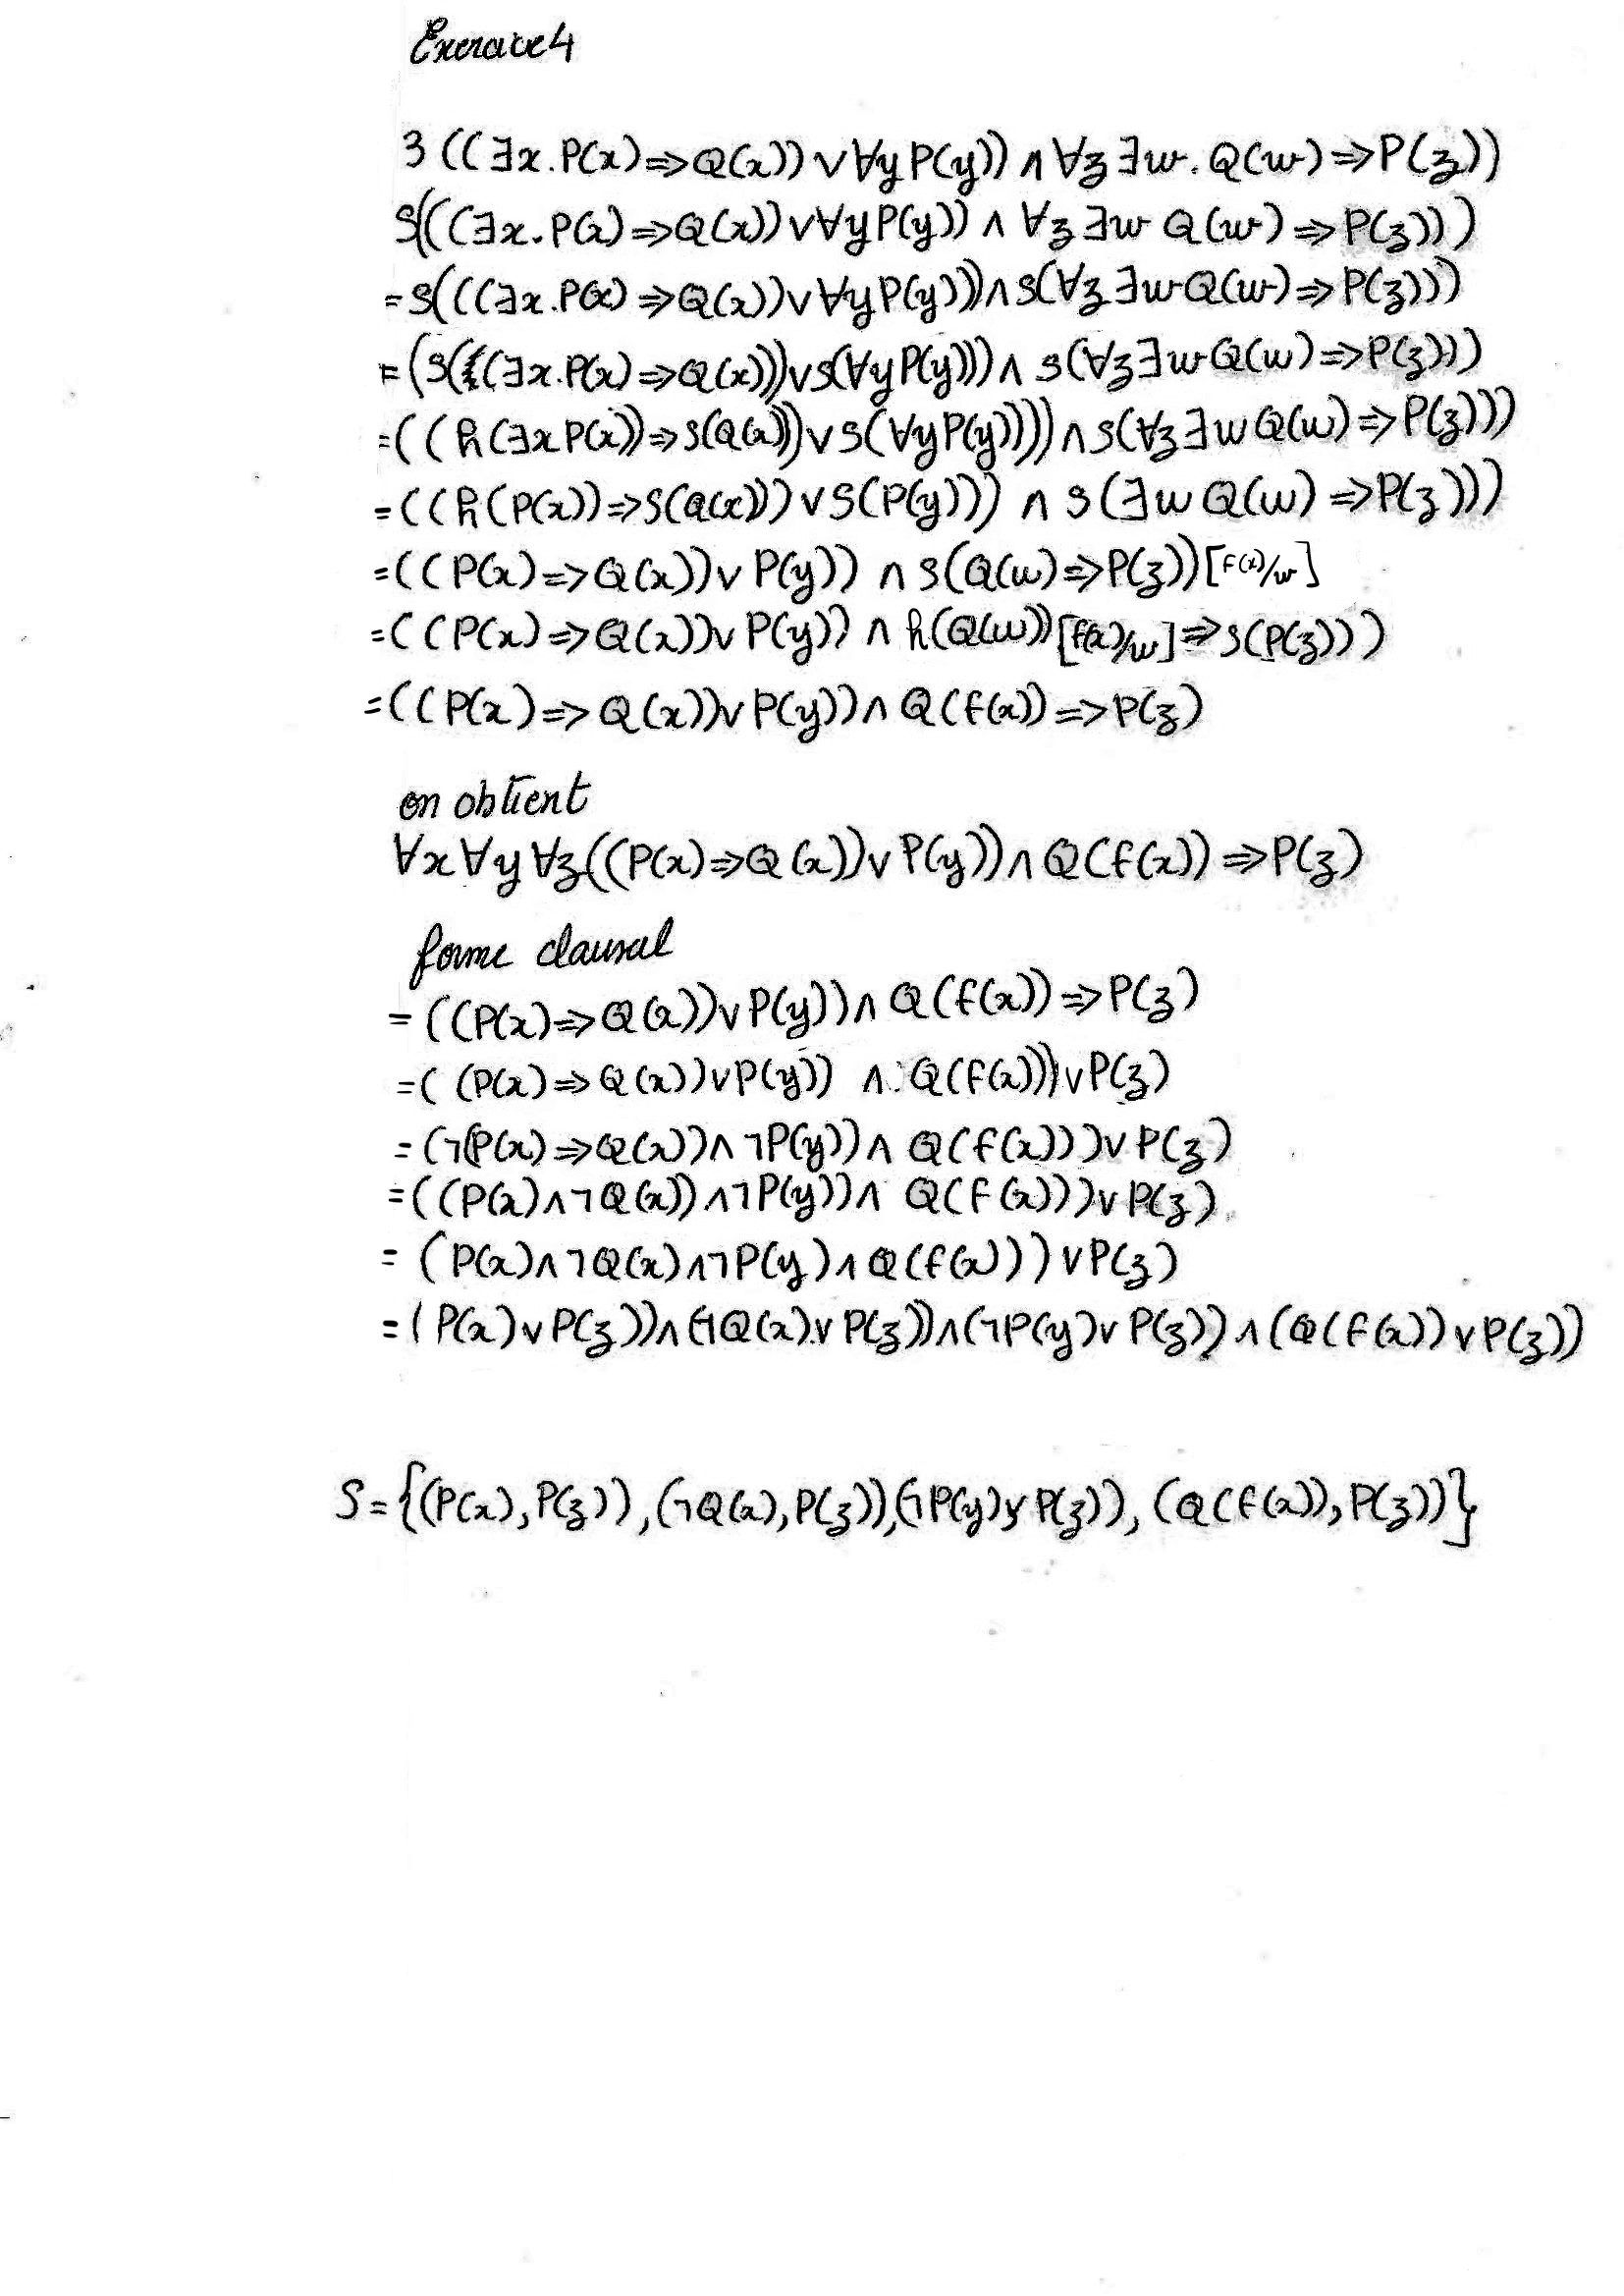 Exercice 4
3 ((∃x.P(x)⇒Q(x))∨∀yP(y))∧∀z∃w.Q(w)⇒P(z))
S(((∃x.P(x)⇒Q(x))∨∀yP(y))∧∀z∃w Q(w)⇒P(z)))
=S(((∃x.P(x)⇒Q(x))∨∀yP(y)))∧S(∀z∃wQ(w)⇒P(z)))
=(S(((∃x.P(x)⇒Q(x)))∨S(∀yP(y)))∧S(∀z∃wQ(w)⇒P(z)))
=((h(∃xP(x))⇒S(Q(x)))∨S(∀yP(y))))∧S(∀z∃wQ(w)⇒P(z)))
=((h(P(x))⇒S(Q(x)))∨S(P(y)))∧S(∃wQ(w)⇒P(z)))
=((P(x)⇒Q(x))∨P(y))∧S(Q(w)⇒P(z))[F(x)/w]
=((P(x)⇒Q(x))∨P(y))∧h(Q(w))[f(x)/w]⇒S(P(z)))
=((P(x)⇒Q(x))∨P(y))∧Q(f(x))⇒P(z)
on obtient
∀x∀y∀z((P(x)⇒Q(x))∨P(y))∧Q(f(x))⇒P(z)
forme clausal
=((P(x)⇒Q(x))∨P(y))∧Q(f(x))⇒P(z)
=((P(x)⇒Q(x))∨P(y))∧Q(f(x)))∨P(z)
=(¬(P(x)⇒Q(x))∧¬P(y))∧Q(f(x)))∨P(z)
=((P(x)∧¬Q(x))∧¬P(y))∧Q(f(x)))∨P(z)
=(P(x)∧¬Q(x)∧¬P(y)∧Q(f(x)))∨P(z)
=(P(x)∨P(z))∧(¬Q(x)∨P(z))∧(¬P(y)∨P(z))∧(Q(f(x))∨P(z))
S={(P(x),P(z)),(¬Q(x),P(z)),(¬P(y)∨P(z)),(Q(f(x)),P(z))}